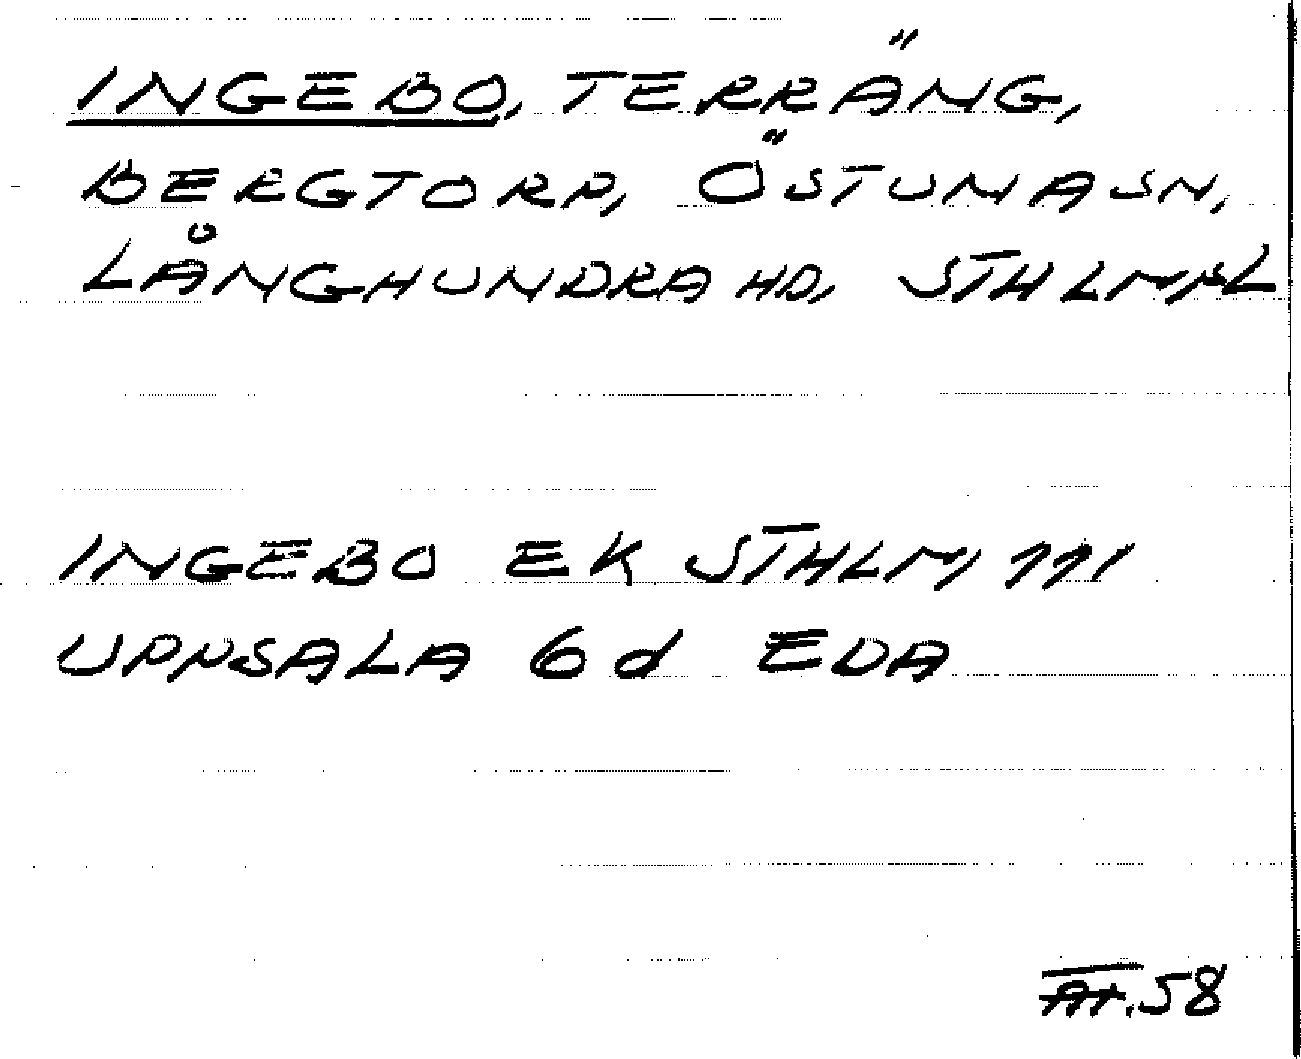 INGEBO, TERRÄNG,
BERGTORP, ÖSTUNASN,
LÅNGHUNDRA HD, STHLMSL
INGEBO EK STHLM 111
UPPSALA 6d EDA
.58